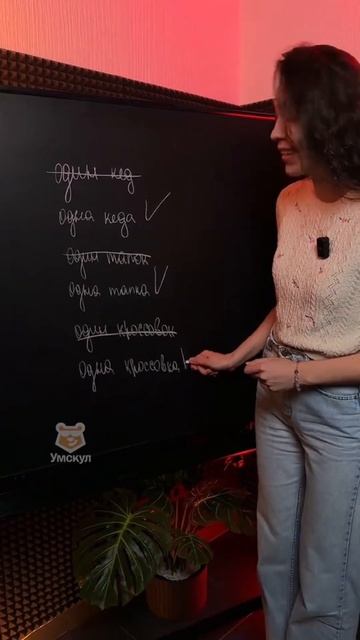 один кед
одна кеда
один тапок
одна тапка
один кроссовок
одна кроссовка
Умскул